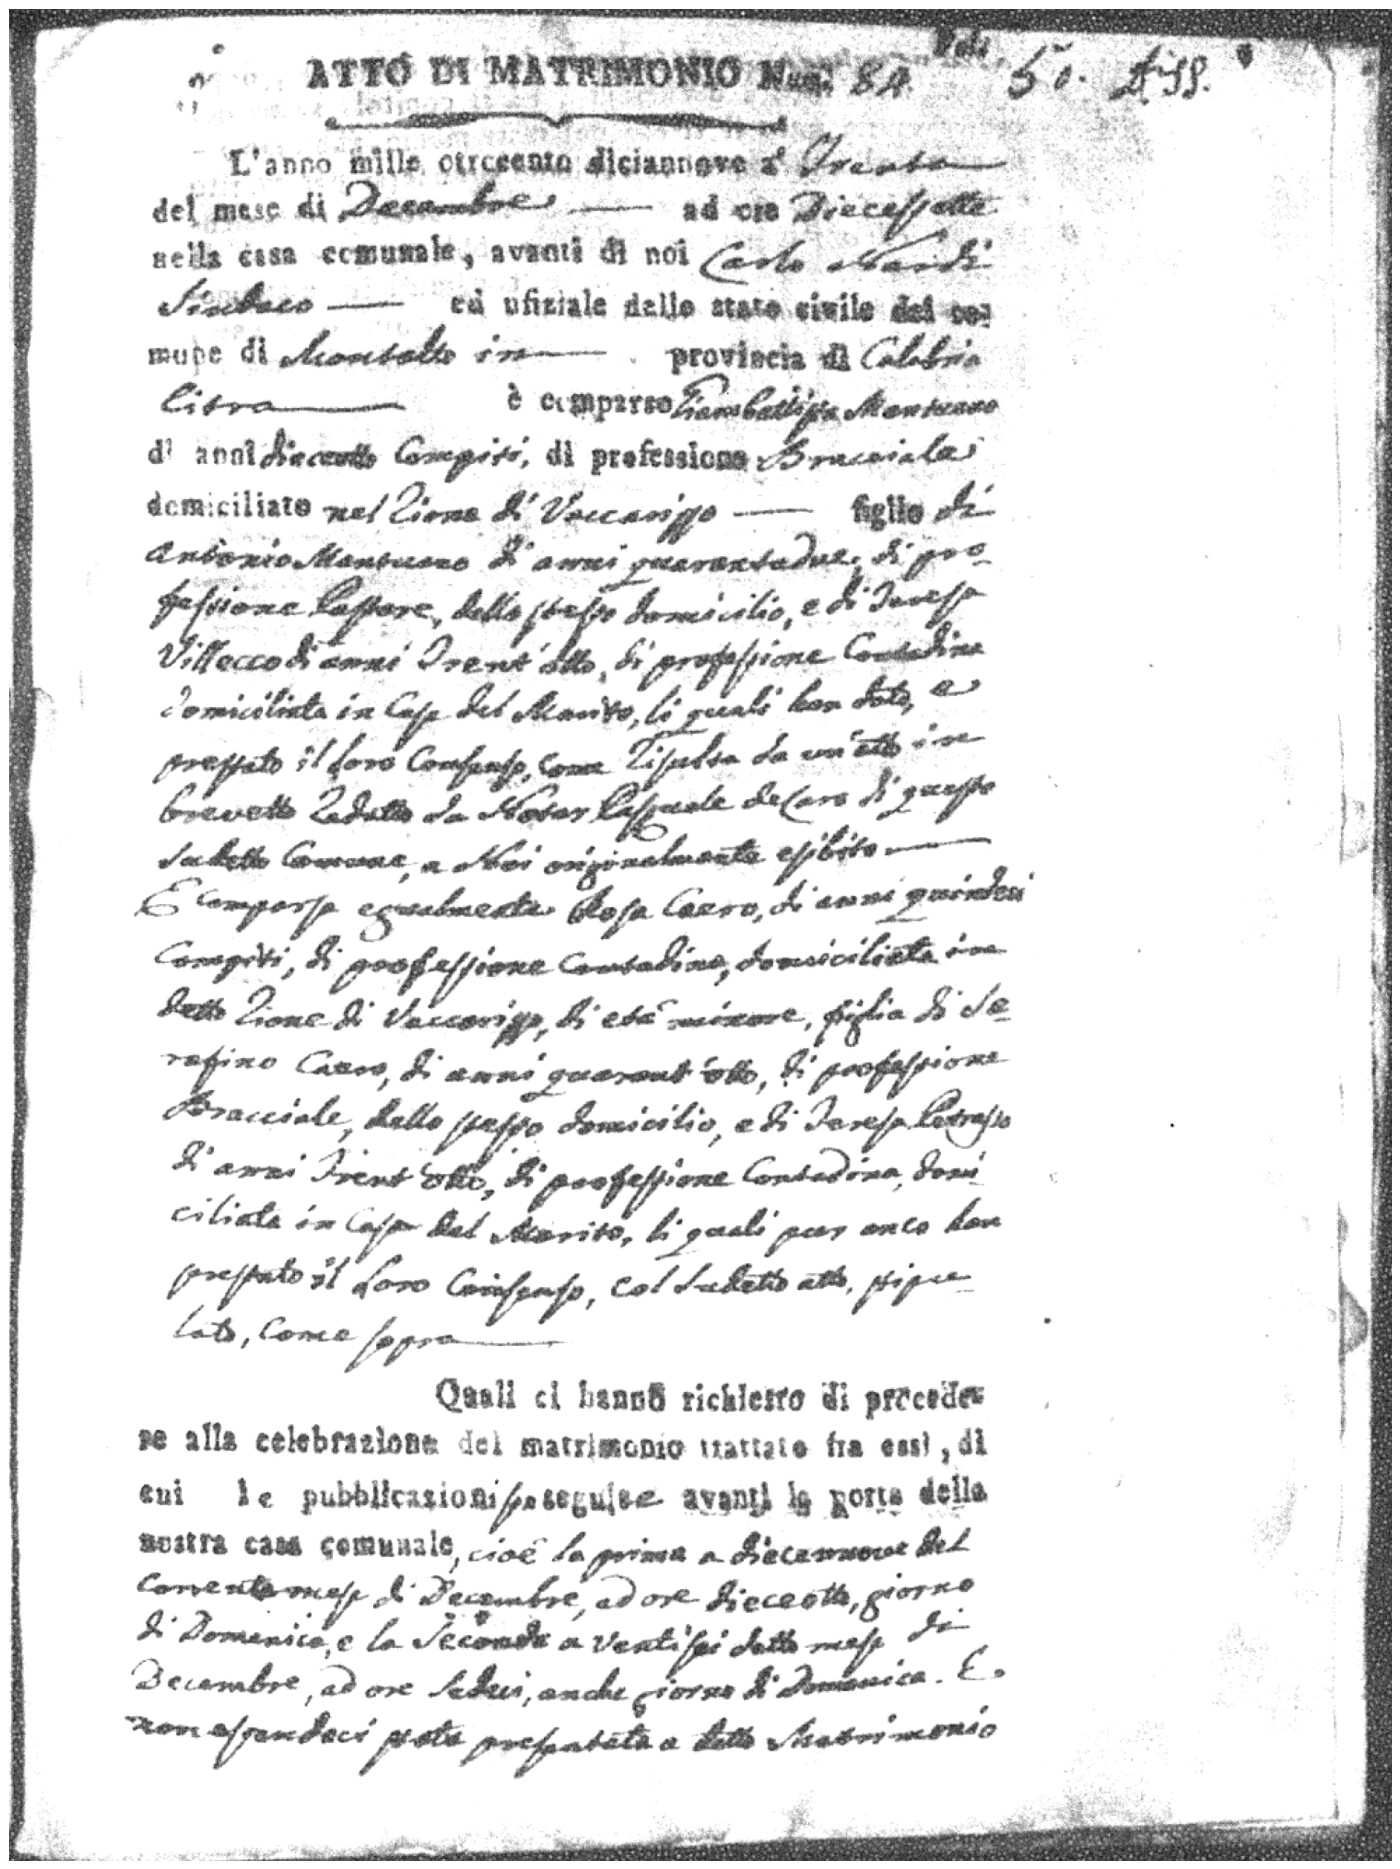 ATTO DI MATRIMONIO Num. 84.
L'anno mille ottocento diciannove a' Trenta
del mese di Decembre ad ore Diecessette
nella casa comunale, avanti di noi Carlo Nardi
Sindaco ed ufiziale dello stato civile del co-
mune di Montalto in provincia di Calabria
Citra è comparso Giambattista Mantuano
di anni dieceotto Compiti, di professione Bracciale
domiciliato nel Rione di Vaccarizzo figlio di
Antonio Mantuano di anni quarantadue, di pro-
fessione Pastore, dello stesso domicilio, e di Teresa
Villecco di anni Trent'otto, di professione Contadina
domiciliata in Casa del Marito, li quali han dato, e
prestato il loro Consenso, come Risulta da un'atto in
brevetto Redatto da Notar Pasquale de Caro di questo
sudetto Comune, a Noi originalmente esibito
E comparsa egualmente Rosa Caero, di anni quindeci
Compiti, di professione Contadina, domiciliata in
detto Rione di Vaccarizzo, di età minore, figlia di Se-
rafino Caero, di anni quarant'otto, di professione
Bracciale, dello stesso domicilio, e di Teresa
di anni Trent'otto, di professione Contadina, domi-
ciliata in Casa del Marito, li quali pur anco han
prestato il loro Consenso, col sudetto atto, stipu-
lato, come sopra
Quali ci hanno richiesto di procede-
re alla celebrazione del matrimonio trattato fra essi, di
cui le pubblicazioni so seguite avanti la porta della
nostra casa comunale, cioè la prima a diecennove del
corrente mese di Decembre, ad ore dieceotto, giorno
di Domenica, e la Seconda a ventisei detto mese di
Decembre, ad ore Sedeci, anche giorno di Domenica. E
non essendoci stata presentata a detto Matrimonio